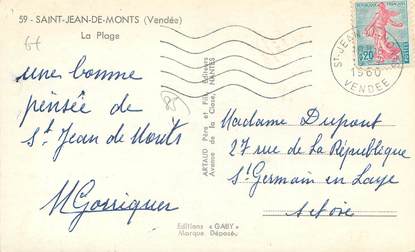 59 - SAINT-JEAN-DE-MONTS (Vendée)
La Plage
une bonne
pensée de
St Jean de Monts
85
ARTAUD Père et Fils, Editeurs
Avenue de la Close, NANTES
REPUBLIQUE FRANÇAISE
0,20
POSTES
ST-JEAN
1960
VENDEE
Madame Dupont
27 rue de La République
St Germain en Laye
S et Oise
Editions « GABY »
Marque Déposée